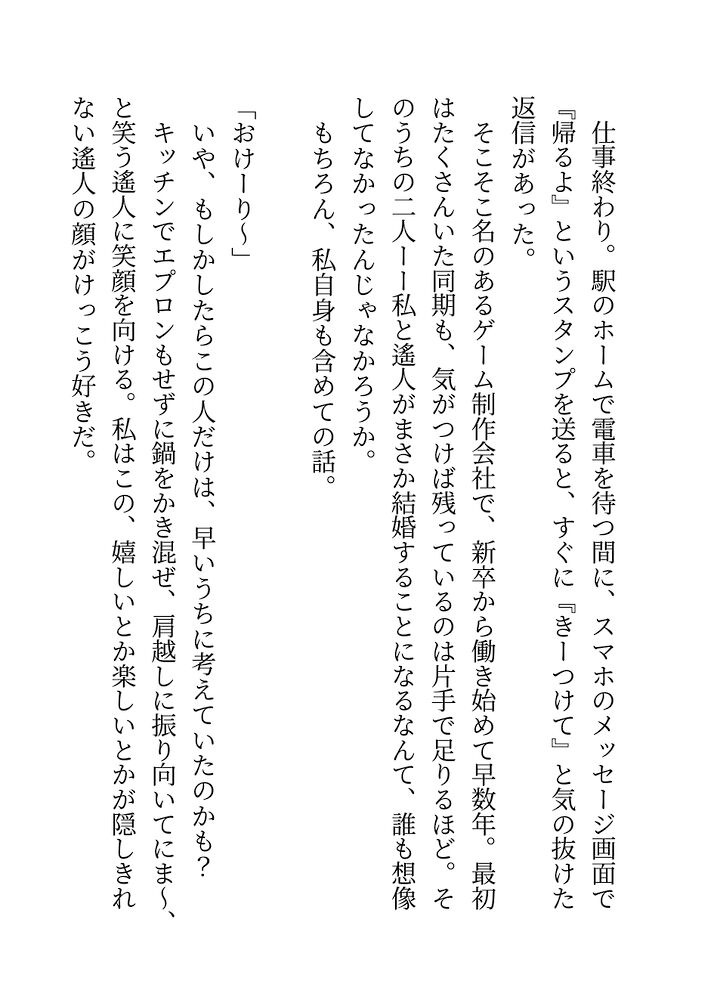 仕事終わり。駅のホームで電車を待つ間に、スマホのメッセージ画面で
『帰るよ』というスタンプを送ると、すぐに『きーつけて』と気の抜けた
返信があった。
　そこそこ名のあるゲーム制作会社で、新卒から働き始めて早数年。最初
はたくさんいた同期も、気がつけば残っているのは片手で足りるほど。そ
のうちの二人ーー私と遙人がまさか結婚することになるなんて、誰も想像
してなかったんじゃなかろうか。
　もちろん、私自身も含めての話。
「おけーり〜」
　いや、もしかしたらこの人だけは、早いうちに考えていたのかも？
　キッチンでエプロンもせずに鍋をかき混ぜ、肩越しに振り向いてにま〜、
と笑う遙人に笑顔を向ける。私はこの、嬉しいとか楽しいとかが隠しきれ
ない遙人の顔がけっこう好きだ。